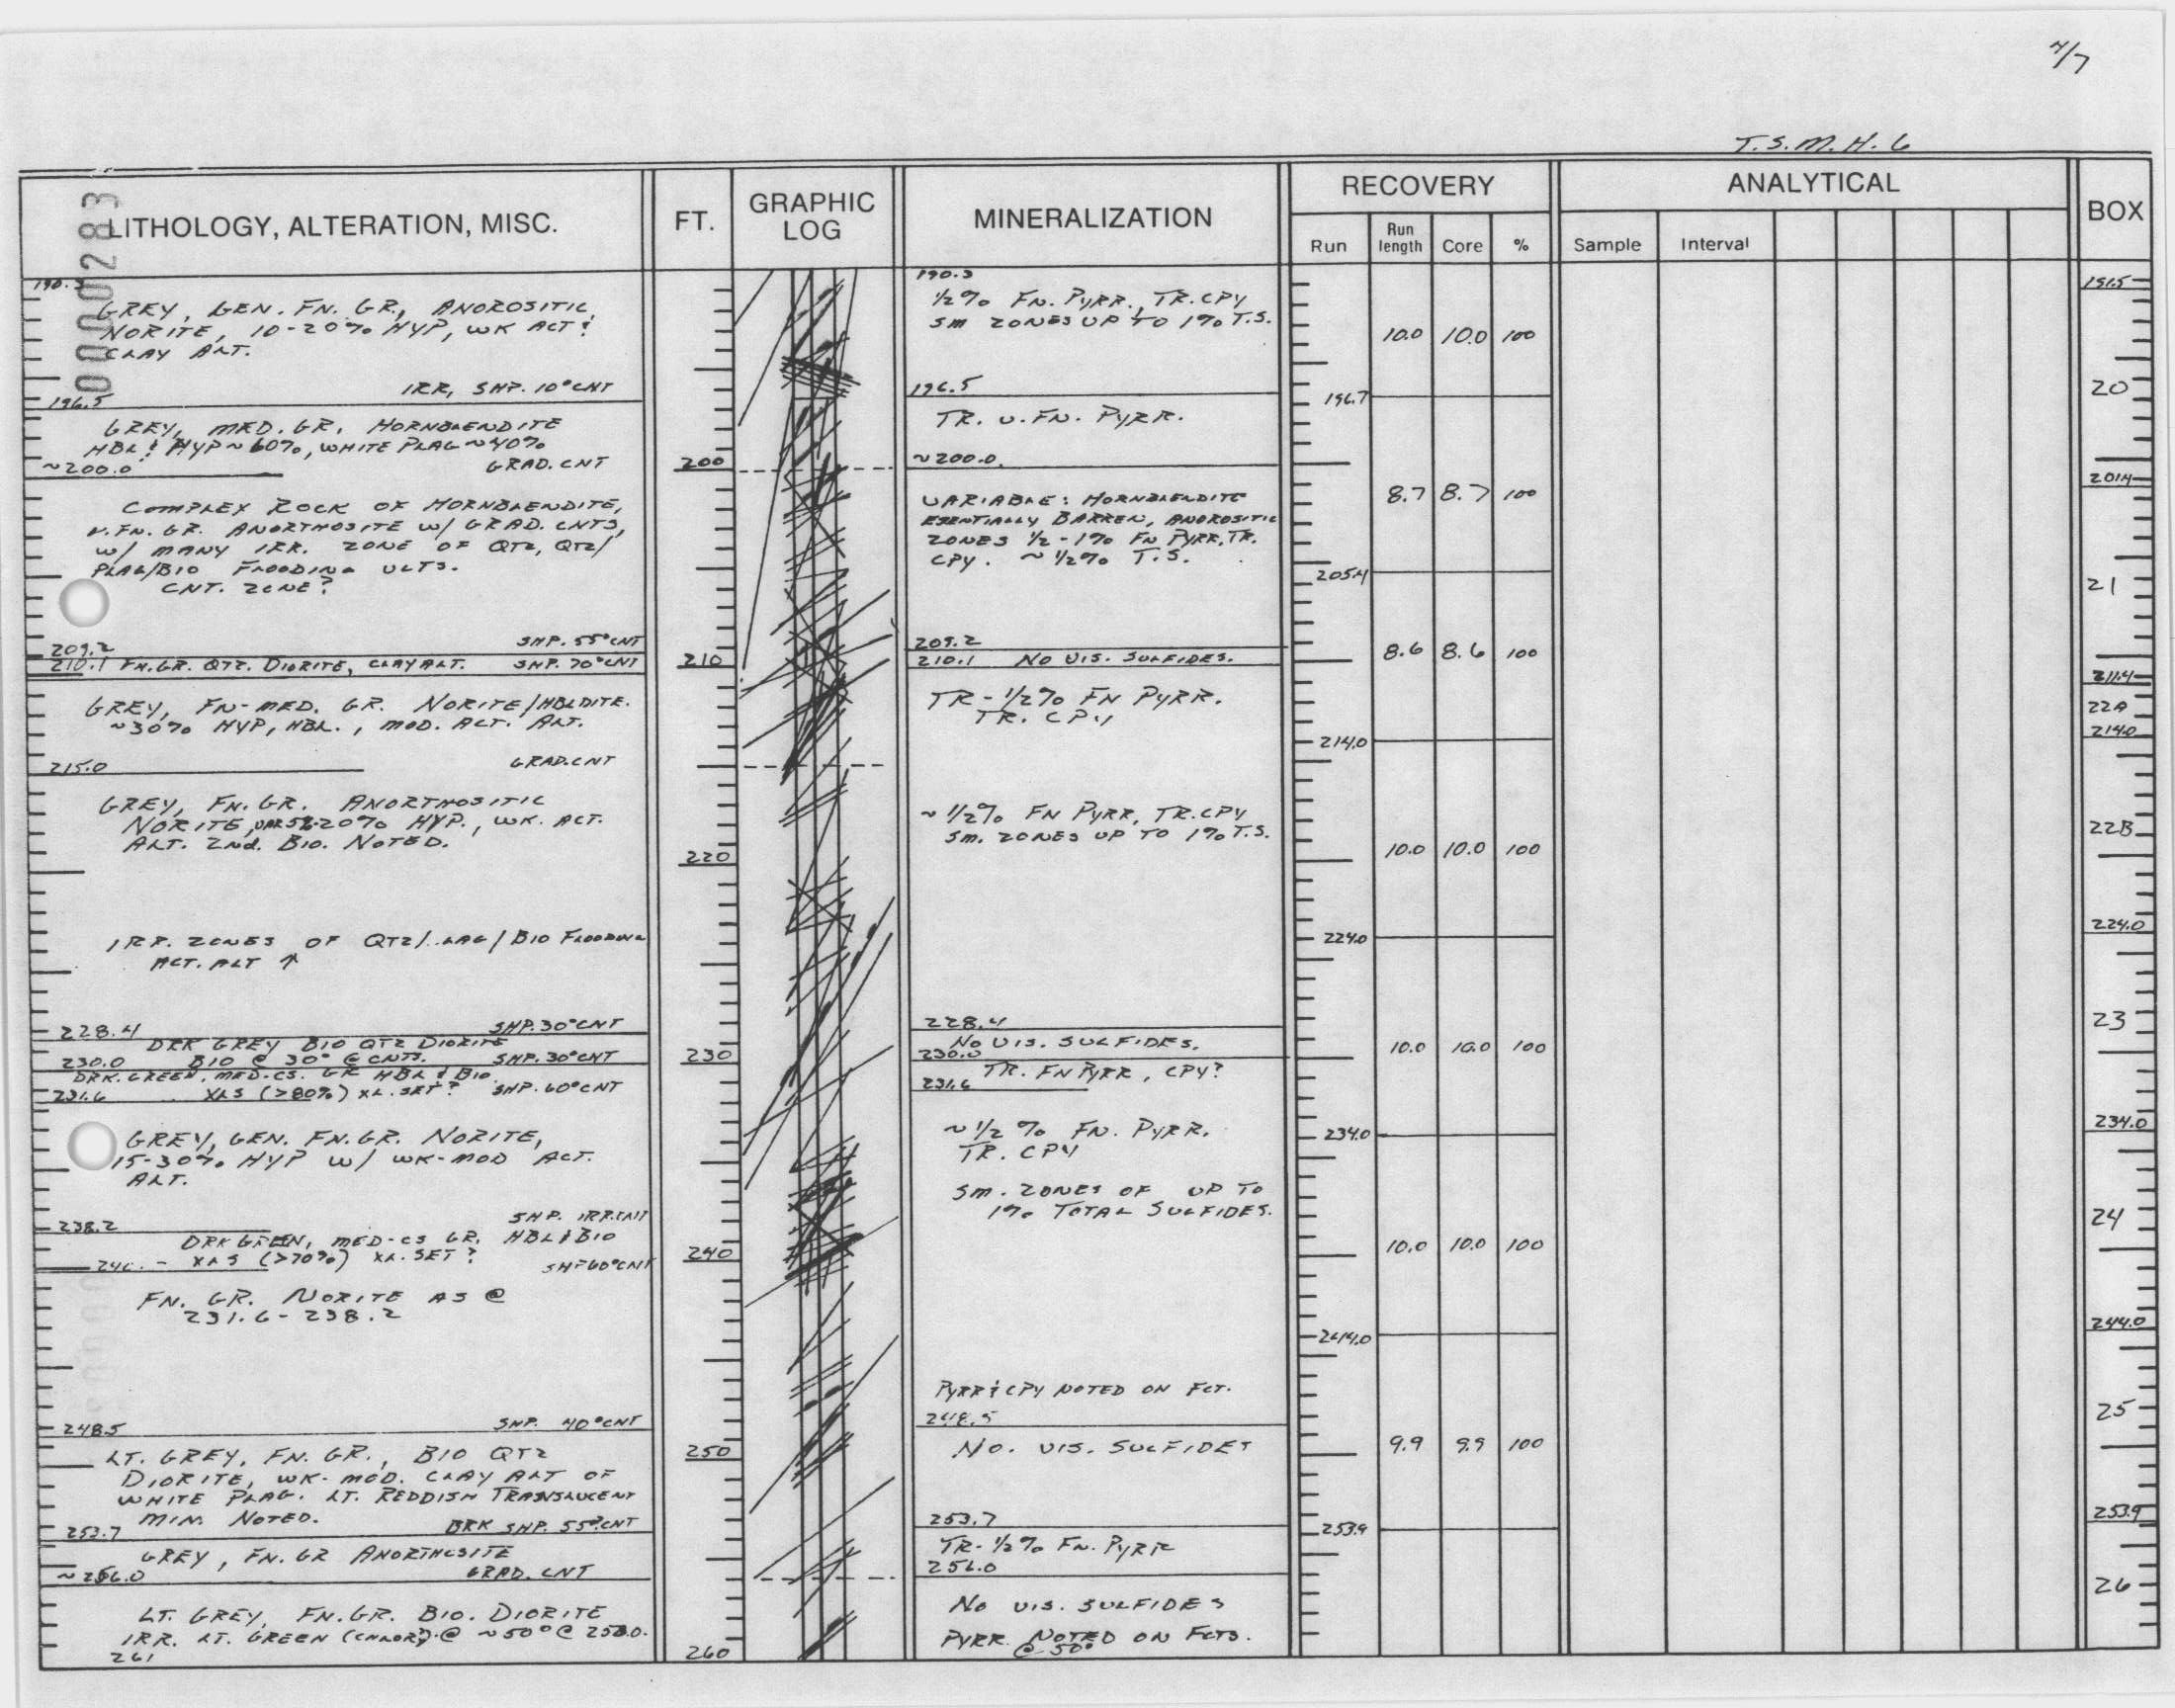 4/7
T.S.M.H. 6
0000283
LITHOLOGY, ALTERATION, MISC.
FT.
GRAPHIC LOG
MINERALIZATION
RECOVERY
Run
Run length
Core
%
ANALYTICAL
Sample
Interval
BOX
190.3
GREY, GEN. FN. GR., ANOROSITIC
NORITE, 10-20% HYP, WK ACT &
CLAY ALT.
IRR, SHP. 10° CNT
196.5
GREY, MED. GR. HORNBLENDITE
HBL & HYP ~ 60%, WHITE PLAG ~ 40%
~200.0 GRAD. CNT
COMPLEX ROCK OF HORNBLENDITE,
V. FN. GR. ANORTHOSITE W/ GRAD. CNTS,
W/ MANY IRR. ZONE OF QTZ, QTZ/
PLAG/BIO FLOODING VLTS.
CNT. ZONE?
209.2 SHP. 55° CNT
210.1 FN. GR. QTZ. DIORITE, CLAY ALT. SHP. 70° CNT
GREY, FN-MED. GR. NORITE/HBLDITE.
~30% HYP, HBL., MOD. ACT. ALT.
215.0 GRAD. CNT
GREY, FN. GR. ANORTHOSITIC
NORITE, VAR 5%-20% HYP., WK. ACT.
ALT. 2nd. BIO. NOTED.
IRR. ZONES OF QTZ/ /BIO FLOODING
ACT. ALT ↑
228.4 SHP. 30° CNT
DRK GREY BIO QTZ DIORITE
230.0 BIO @ 30° @ CNTS. SHP. 30° CNT
DRK. GREEN, MED-CS. GR HBL & BIO
231.6 XLS (>80%) XL. SET? SHP. 60° CNT
GREY, GEN. FN. GR. NORITE,
15-30% HYP W/ WK-MOD ACT.
ALT.
238.2 SHP. IRR. CNT
DRK GREEN, MED-CS GR. HBL & BIO
XLS (>70%) XL. SET? SHP 60° CNT
FN. GR. NORITE AS @
231.6-238.2
248.5 SHP. 40° CNT
LT. GREY, FN. GR., BIO QTZ
DIORITE, WK-MOD. CLAY ALT OF
WHITE PLAG. LT. REDDISH TRANSLUCENT
MIN. NOTED.
253.7 BRK SHP. 55° CNT
GREY, FN. GR ANORTHOSITE
~256.0 GRAD. CNT
LT. GREY, FN. GR. BIO. DIORITE
IRR. LT. GREEN (CHLOR?) @ ~50° @ 258.0.
261
200
210
220
230
240
250
260
190.3
1/2% FN. PYRR., TR. CPY
SM ZONES UP TO 1% T.S.
196.5
TR. V. FN. PYRR.
~200.0
VARIABLE: HORNBLENDITE
ESENTIALLY BARREN, ANOROSITIC
ZONES 1/2-1% FN PYRR, TR.
CPY. ~1/2% T.S.
209.2
210.1 NO VIS. SULFIDES.
TR-1/2% FN PYRR.
TR. CPY
~1/2% FN PYRR, TR. CPY
SM. ZONES UP TO 1% T.S.
228.4
NO VIS. SULFIDES.
230.0
TR. FN PYRR, CPY?
231.6
~1/2% FN. PYRR.
TR. CPY
SM. ZONES OF UP TO
1% TOTAL SULFIDES.
PYRR & CPY NOTED ON FCT.
248.5
NO. VIS. SULFIDES
253.7
TR-1/2% FN. PYRR
256.0
NO VIS. SULFIDES
PYRR NOTED ON FCTS.
@ 50°
10.0 10.0 100
196.7
8.7 8.7 100
205.4
8.6 8.6 100
214.0
10.0 10.0 100
224.0
10.0 10.0 100
234.0
10.0 10.0 100
244.0
9.9 9.9 100
253.9
191.5
20
201.4
21
211.4
22A
214.0
22B
224.0
23
234.0
24
244.0
25
253.9
26